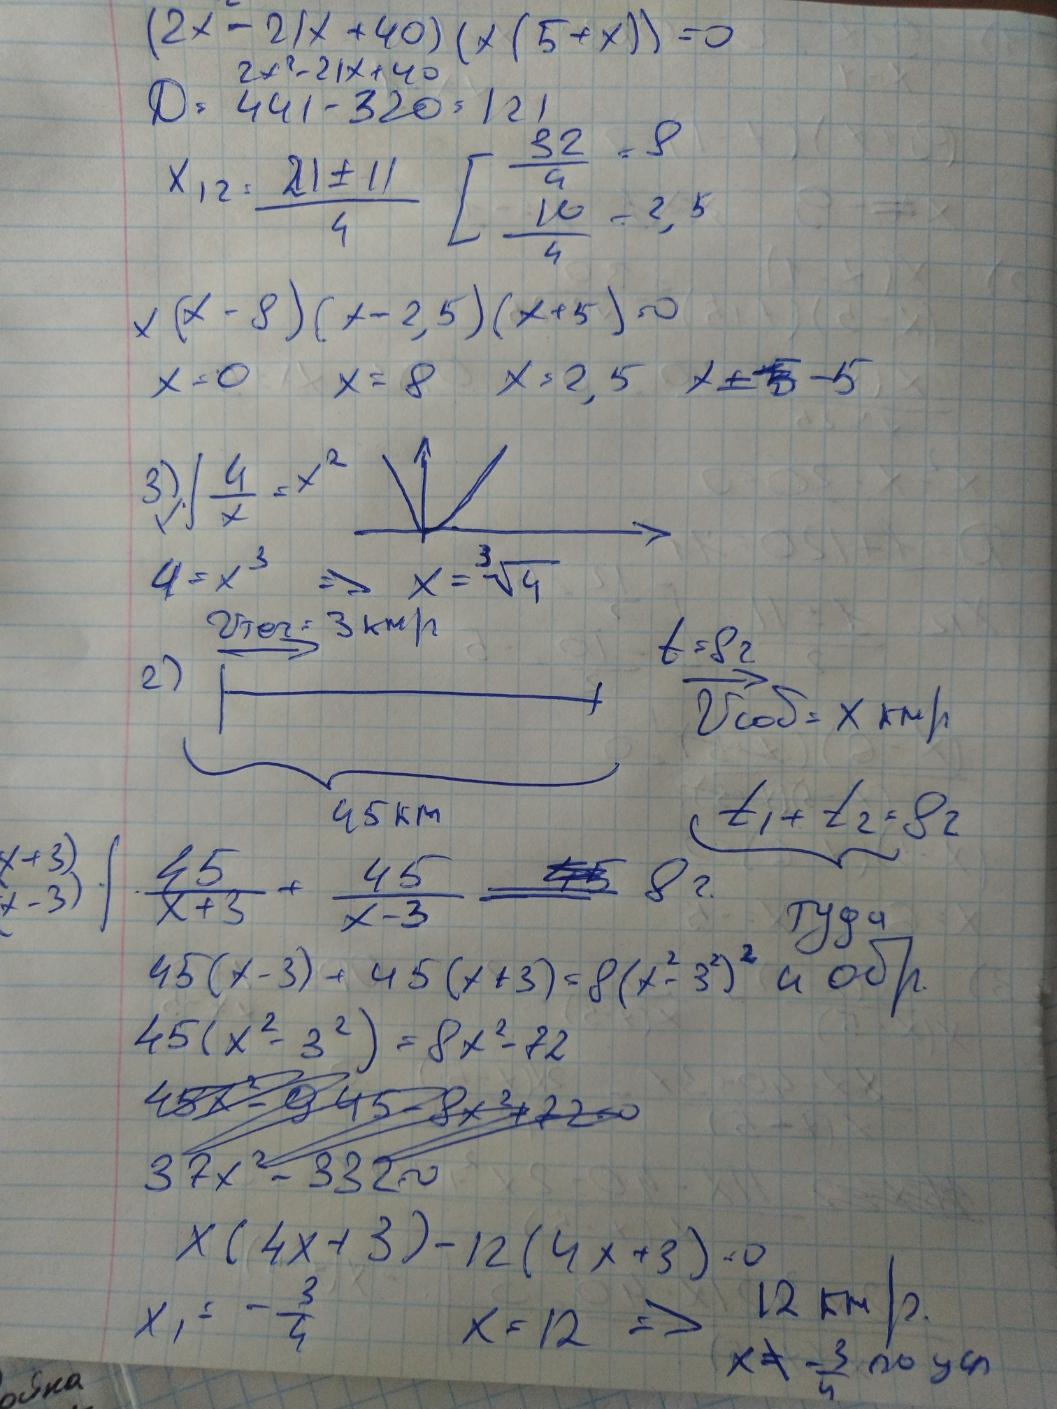 (2x² - 21x + 40)(x(5+x)) = 0
2x² - 21x + 40
D = 441 - 320 = 121
x₁₂ = (21 ± 11)/4 [ 32/4 = 8
10/4 = 2,5
x(x - 8)(x - 2,5)(x + 5) = 0
x = 0 x = 8 x = 2,5 x = -5
3) 4/x = x²
4 = x³ => x = ³√4
Vтеч = 3 км/ч
2)
t = 8ч
Vсоб = x км/ч
45 км
t₁ + t₂ = 8ч
туда
и обр.
(x+3)
(x-3)
45/(x+3) + 45/(x-3) = 8ч.
45(x-3) + 45(x+3) = 8(x² - 3²)²
45(x² - 3²) = 8x² - 72
45x² - 9·45 - 8x² + 72 = 0
37x² - 332 = 0
x(4x+3) - 12(4x+3) = 0
x₁ = -3/4 x = 12 => 12 км/ч.
x ≠ -3/4 по усл